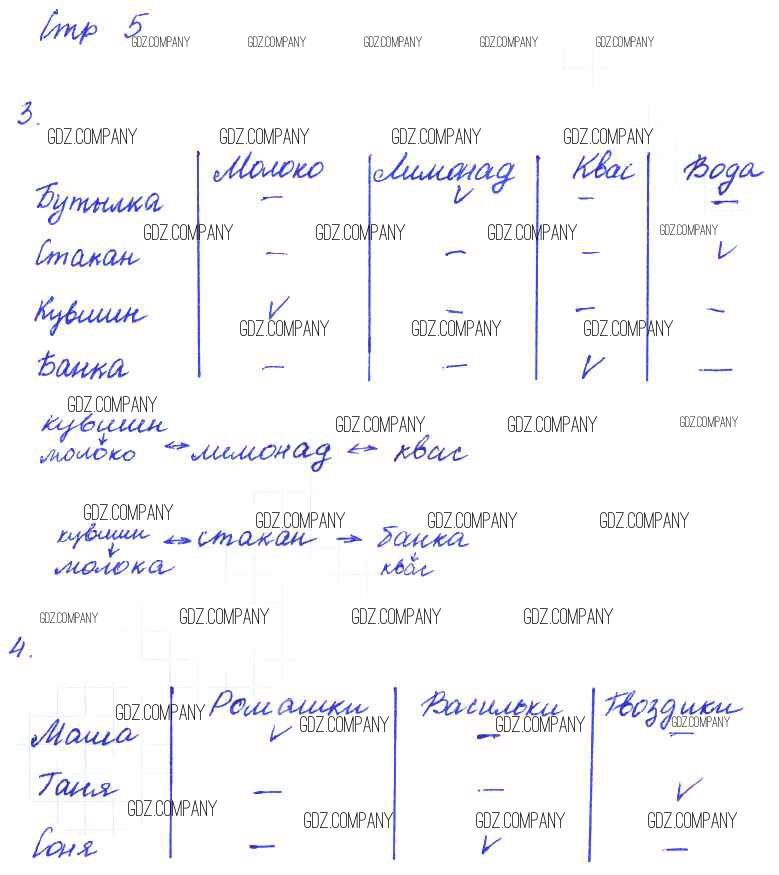 Стр 5
GDZ.COMPANY GDZ.COMPANY GDZ.COMPANY GDZ.COMPANY GDZ.COMPANY
3.
GDZ.COMPANY GDZ.COMPANY GDZ.COMPANY GDZ.COMPANY
Молоко Лимонад Квас Вода
Бутылка — ✓ — —
GDZ.COMPANY GDZ.COMPANY GDZ.COMPANY GDZ.COMPANY
Стакан — — — ✓
Кувшин ✓ — — —
GDZ.COMPANY GDZ.COMPANY GDZ.COMPANY
Банка — — ✓ —
GDZ.COMPANY
кувшин GDZ.COMPANY GDZ.COMPANY GDZ.COMPANY
↓
молоко ↔ лимонад ↔ квас
GDZ.COMPANY GDZ.COMPANY GDZ.COMPANY GDZ.COMPANY
кувшин ↔ стакан → банка
↓ ↓
молока квас
GDZ.COMPANY GDZ.COMPANY GDZ.COMPANY GDZ.COMPANY
4.
Ромашки Васильки Гвоздики
GDZ.COMPANY GDZ.COMPANY GDZ.COMPANY GDZ.COMPANY
Маша ✓ — —
Таня — — ✓
GDZ.COMPANY GDZ.COMPANY GDZ.COMPANY GDZ.COMPANY
Соня — ✓ —